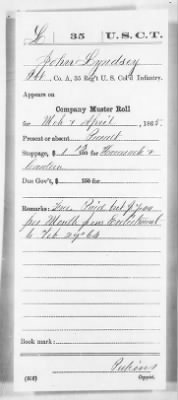 L | 35 | U.S.C.T.
John Lyndsey
Pvt, Co. A, 35 Reg't U. S. Col'd Infantry.
Appears on
Company Muster Roll
for Mch & April, 1865
Present or absent Present
Stoppage, $ 1 100 for Haversack &
Canteen
Due Gov't, $ 100 for
Remarks: Free. Paid but $7.00
per Month from Enlistment
to Feb 29 64
Book mark:
Perkins
(358) Copyist.